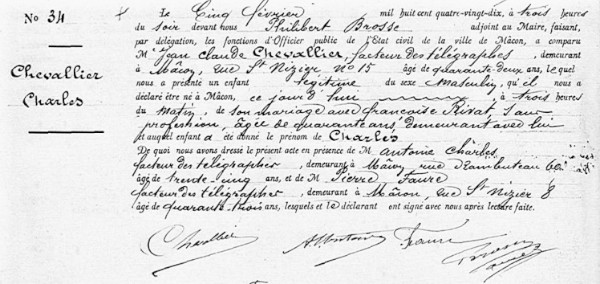 No 34
Chevallier
Charles
Le Cinq février mil huit cent quatre-vingt-dix, à trois heures
du soir devant nous Philibert Brosse adjoint au Maire, faisant,
par délégation, les fonctions d'Officier public de l'Etat civil de la ville de Mâcon, a comparu
M Jean Claude Chevallier, facteur des télégraphes, demeurant
à Mâcon, rue St Nizier no 15 âgé de quarante deux ans, lequel
nous a présenté un enfant légitime du sexe Masculin, qu'il nous a
déclaré être né à Mâcon, ce jourd'hui à trois heures
du Matin, de son mariage avec françoise Rivat, sans
profession, âgée de quarante ans demeurant avec lui
et auquel enfant a été donné le prénom de Charles
De quoi nous avons dressé le présent acte en présence de M Antoine Charles,
facteur des télégraphes, demeurant à Mâcon rue Rambuteau
âgé de trente cinq ans, et de M Pierre Faure
facteur des télégraphes, demeurant à Mâcon, rue St Nizier 8
âgé de quarante trois ans, lesquels et le déclarant ont signé avec nous après lecture faite.
Chevallier Faure